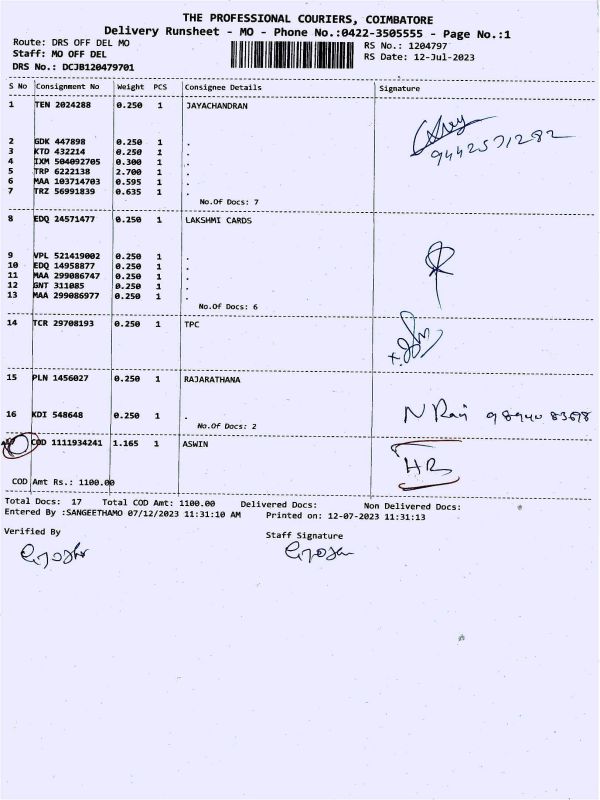 THE PROFESSIONAL COURIERS, COIMBATORE
Delivery Runsheet - MO - Phone No.:0422-3505555 - Page No.:1
Route: DRS OFF DEL MO RS No.: 1204797
Staff: MO OFF DEL RS Date: 12-Jul-2023
DRS No.: DCJB120479701
S No Consignment No Weight PCS Consignee Details Signature
1 TEN 2024288 0.250 1 JAYACHANDRAN
9442571282
2 GDK 447898 0.250 1 .
3 KTD 432214 0.250 1 .
4 IXM 504092705 0.300 1 .
5 TRP 6222138 2.700 1 .
6 MAA 103714703 0.595 1 .
7 TRZ 56991839 0.635 1 .
No.Of Docs: 7
8 EDQ 24571477 0.250 1 LAKSHMI CARDS
9 VPL 521419002 0.250 1 .
10 EDQ 14958877 0.250 1 .
11 MAA 299086747 0.250 1 .
12 GNT 311085 0.250 1 .
13 MAA 299086977 0.250 1 .
No.Of Docs: 6
14 TCR 29708193 0.250 1 TPC
15 PLN 1456027 0.250 1 RAJARATHANA
16 KDI 548648 0.250 1 . N Raj
No.Of Docs: 2
17 COD 1111934241 1.165 1 ASWIN
COD Amt Rs.: 1100.00
Total Docs: 17 Total COD Amt: 1100.00 Delivered Docs: Non Delivered Docs:
Entered By :SANGEETHAMO 07/12/2023 11:31:10 AM Printed on: 12-07-2023 11:31:13
Verified By Staff Signature